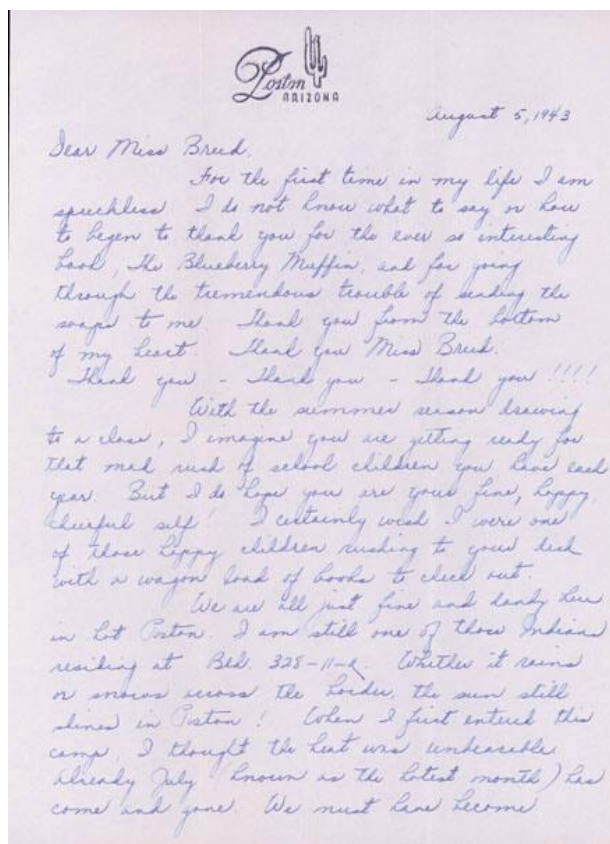 Poston
ARIZONA
August 5, 1943
Dear Miss Breed,
For the first time in my life I am
speechless. I do not know what to say or how
to begin to thank you for the ever so interesting
book, The Blueberry Muffin, and for going
through the tremendous trouble of sending the
soaps to me. Thank you from the bottom
of my heart. Thank you Miss Breed.
Thank you - Thank you - Thank you !!!!
With the summer season drawing
to a close, I imagine you are getting ready for
that mad rush of school children you have each
year. But I do hope you are your fine, happy,
cheerful self! I certainly wish I were one
of those happy children rushing to your desk
with a wagon load of books to check out.
We are all just fine and dandy here
in hot Poston. I am still one of those Indians
residing at Blk. 328-11-A. Whether it rains
or snows across the border, the sun still
shines in Poston! When I first entered this
camp, I thought the heat was unbearable
already July known as the hotest month) has
come and gone. We must have become